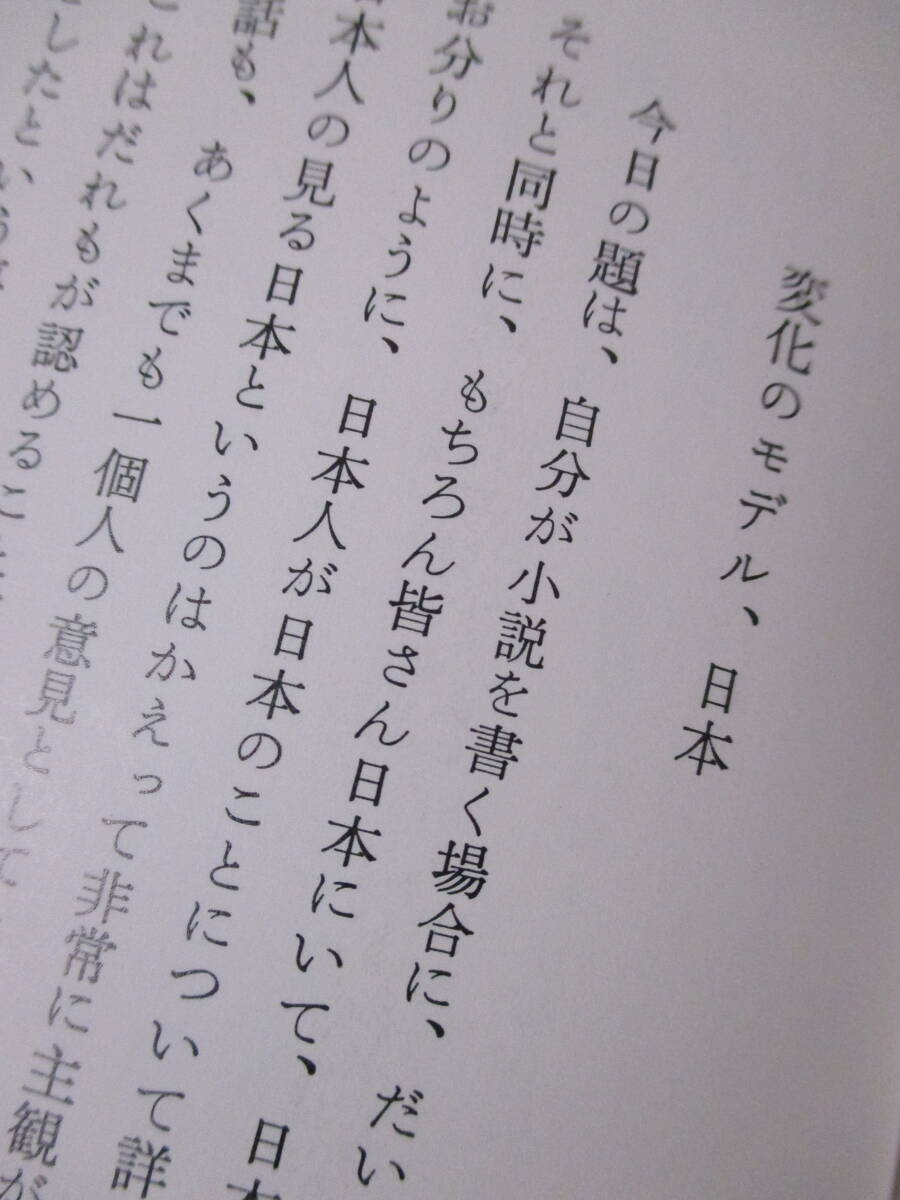 変化のモデル、日本
今日の題は、自分が小説を書く場合に、だい
それと同時に、もちろん皆さん日本にいて、日本
お分りのように、日本人が日本のことについて詳
本人の見る日本というのはかえって非常に主観が
話も、あくまでも一個人の意見として
れはだれもが認めるこ
したという